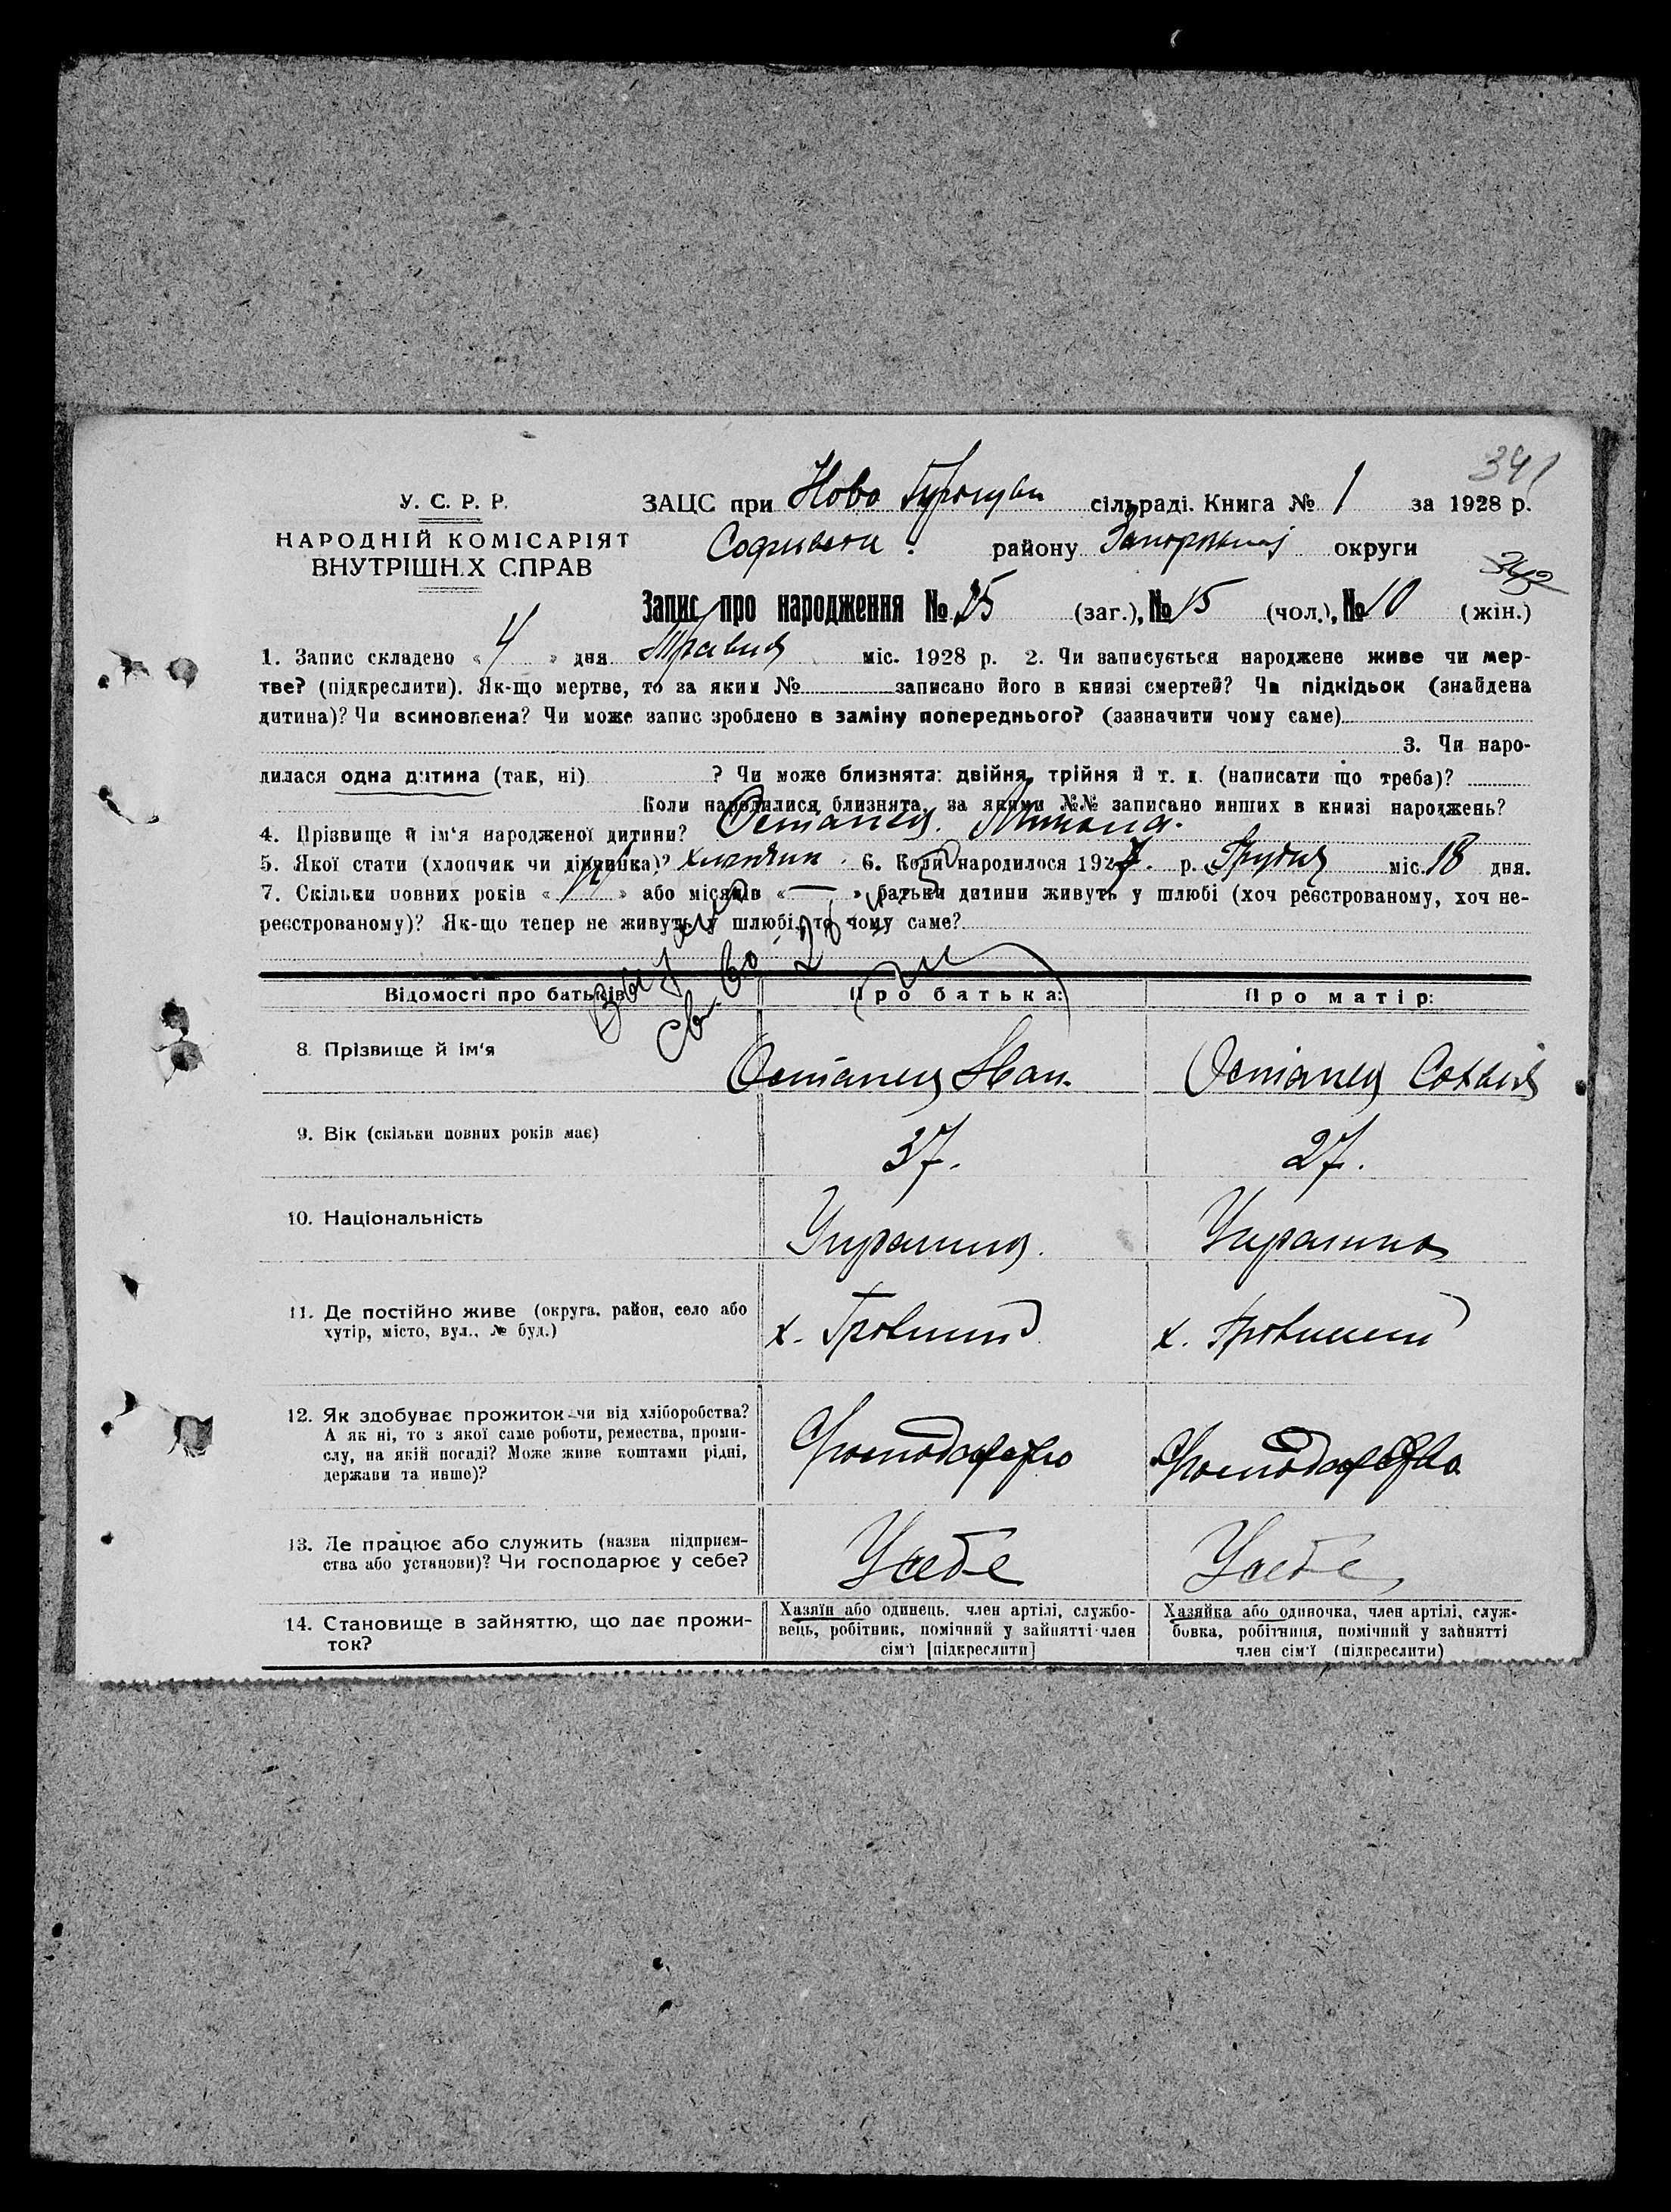 341
У. С. Р. Р.
ЗАЦС при Ново сільраді. Книга № 1 за 1928 р.
НАРОДНІЙ КОМІСАРІЯТ
ВНУТРІШН.Х СПРАВ
району округи
342
Запис про народження № 25 (заг.), № 15 (чол.), № 10 (жін.)
1. Запис складено « 4 » дня Травня міс. 1928 р. 2. Чи записується народжене живе чи мер-
тве? (підкреслити). Як-що мертве, то за яким № записано його в книзі смертей? Чи підкідьок (знайдена
дитина)? Чи всиновлена? Чи може запис зроблено в заміну попереднього? (зазначити чому саме)
3. Чи наро-
дилася одна дитина (так, ні) ? Чи може близнята: двійня, трійня й т. д. (написати що треба)?
Коли народилися близнята, за якими №№ записано инших в книзі народжень?
4. Прізвище й ім'я народженої дитини? Останец. Микола.
5. Якої стати (хлопчик чи дівчинка)? хлопчик. 6. Коли народилося 1927. р. Грудня міс. 18 дня.
7. Скільки повних років « » або місяців « — » батьки дитини живуть у шлюбі (хоч реєстрованому, хоч не-
реєстрованому)? Як-що тепер не живуть у шлюбі, то чому саме?
Відомості про батьків Про батька: Про матір:
8. Прізвище й ім'я Останец Иван. Останец
9. Вік (скільки повних років має) 37. 27.
10. Національність Украинец. Украинка
11. Де постійно живе (округа, район, село або
хутір, місто, вул., № буд.)
х. х.
12. Як здобуває прожиток—чи від хліборобства?
А як ні, то з якої саме роботи, ремества, проми-
слу, на якій посаді? Може живе коштами рідні,
держави та инше)?
13. Де працює або служить (назва підприєм-
ства або установи)? Чи господарює у себе?
У себе У себе
14. Становище в зайняттю, що дає прожи-
ток?
Хазяїн або одинець, член артілі, службо-
вець, робітник, помічний у зайнятті член
сім'ї [підкреслити]
Хазяйка або одиночка, член артілі, служ-
бовка, робітниця, помічний у зайнятті
член сім'ї (підкреслити)